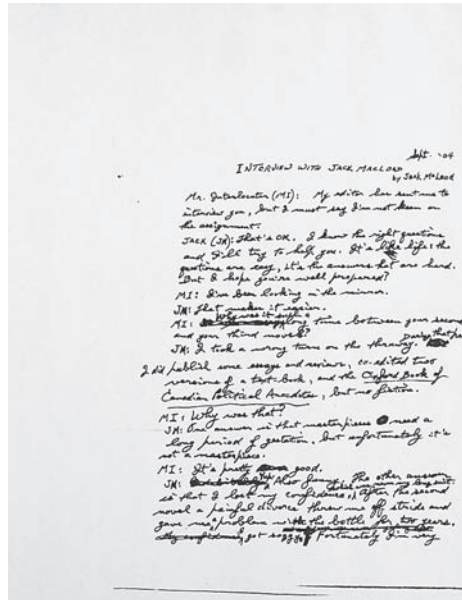 Sept. '04
INTERVIEW WITH JACK MACLEOD
by Jack MacLeod
Mr. Interlocutor (MI): My editor has sent me to
interview you, but I must say I'm not keen on
the assignment.
JACK (JM): That's OK. I know the right questions
and I'll try to help you. It's like life: the
questions are easy, it's the answers that are hard.
But I hope you're well prepared?
MI: I've been looking in the mirror.
JM: That makes it easier.
MI: Why was it such a long time between your second
and your third novels?
JM: I took a wrong turn on the thruway. During that
I did publish some essays and reviews, co-edited two
versions of a text-book, and the Oxford Book of
Canadian Political Anecdotes, but no fiction.
MI: Why was that?
JM: One answer is that masterpieces need a
long period of gestation, but unfortunately it's
not a masterpiece.
MI: It's pretty good.
JM: Also funny. The other answer
is that I lost my confidence, After the second
novel a painful divorce threw me off stride and
gave me problem with the bottle for two years.
got soggy. Fortunately I'm very